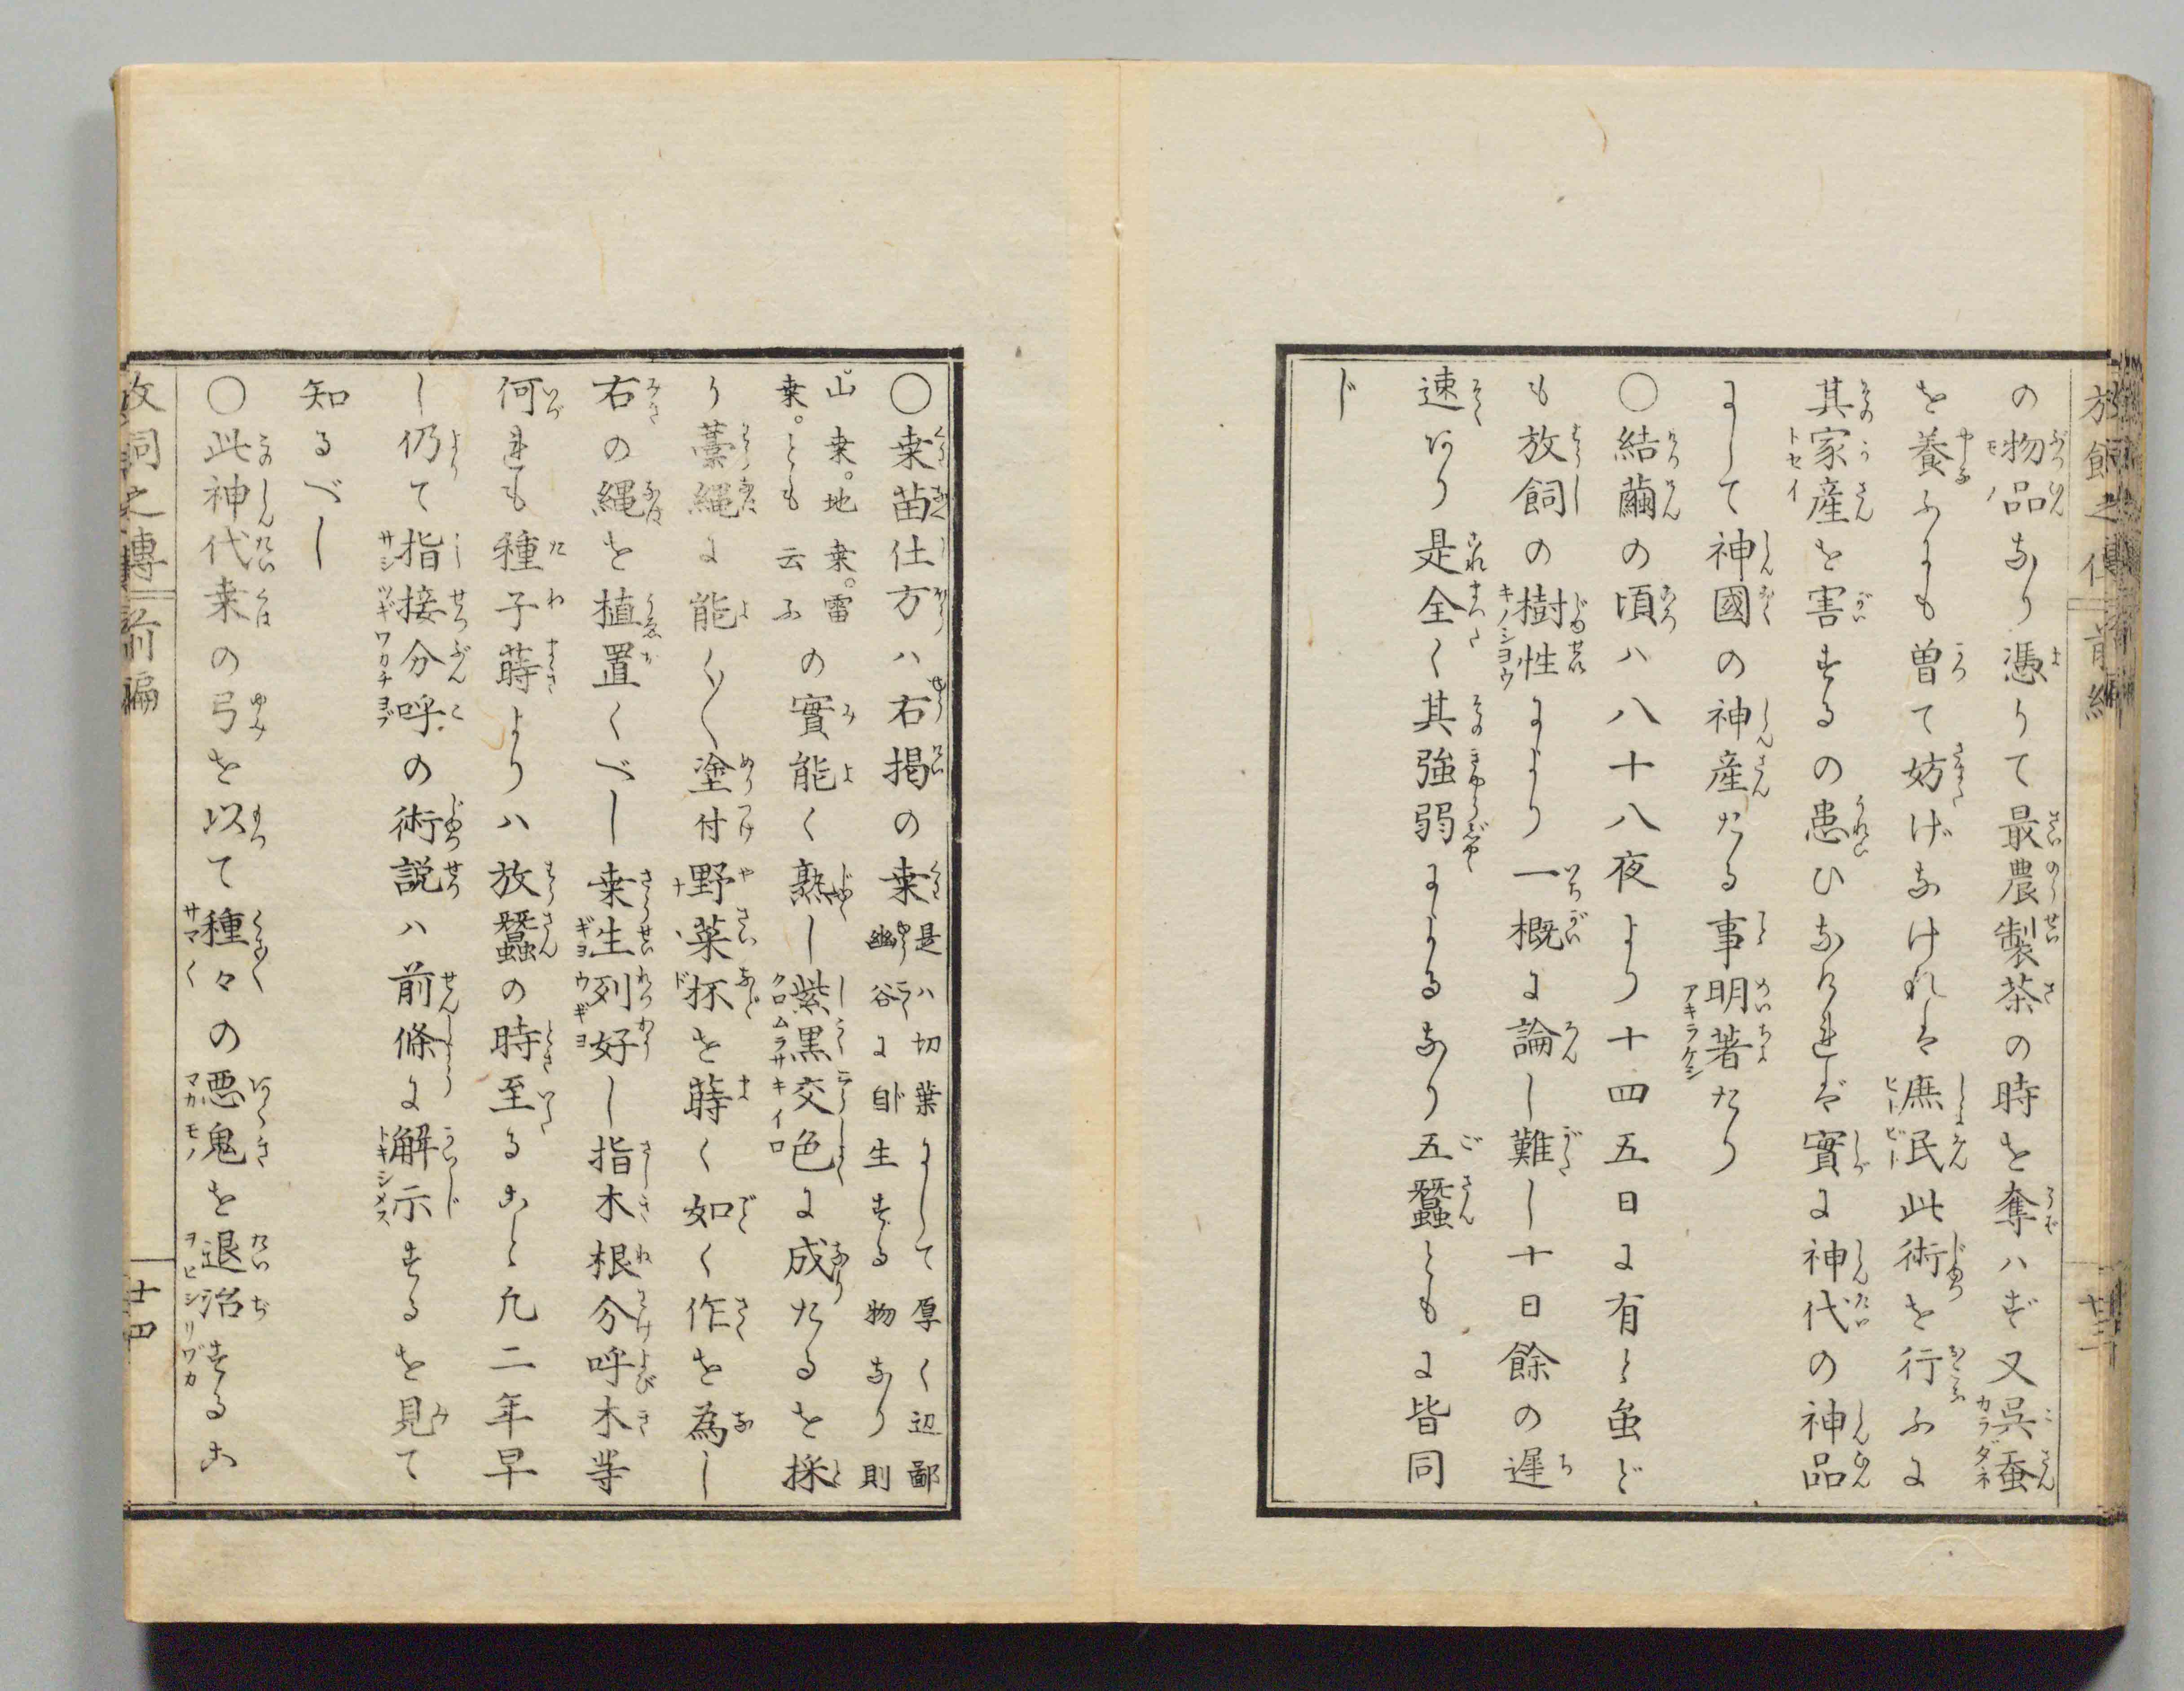 の物品なり憑りて最農製茶の時を奪ハず又呉蚕
を養ふにも曽て妨げなけれは庶民此術を行ふに
其家産を害するの患ひなけれは実に神代の神品
にして神國の神産たる事明著たり
〇結繭の頃ハ八十八夜より十四五日に有と虽ど
も放飼の樹性により一概に論し難し十日餘の遅
速あり是全く其強弱によるなり五蠶ともに皆同
じ
〇桒苗仕方ハ右掲の桒是ハ切葉にして厚く辺鄙
幽谷に自生する物なり則
山桒。地桒。雷
桒。とも云ふの實能く熟し紫黒交色に成たるを採
り藁縄に能く〳〵塗付野菜抔を蒔く如く作を為し
右の縄を植置くべし桒生列好し指木根分呼木等
何れも種子蒔よりハ放蠶の時至ること凡二年早
し仍て指接分呼の術説ハ前條に解示するを見て
知るべし
〇此神代桒の弓を以て種々の悪鬼を退治するこ
放飼之傳 前編 十四